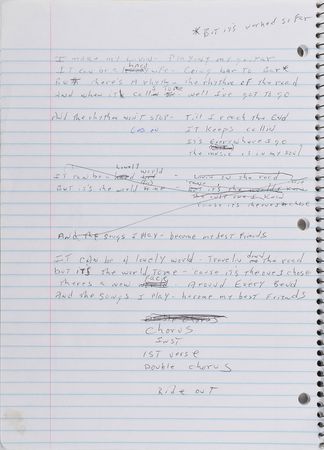 *But it's worked so far
I make my livin - Playing my guitar
It can be a hard life - Going bar to bar
But there's a rhythm - the rhythm of the road
And when it calls to me well I've got to go
And the rhythm won't stop - Till I reach the End
It keeps callin
It's everywhere I go
the music is in my soul
Lonely
It can be a world - Livin on the road
But it's the world
cause it's the ones I chose
And the songs I play - become my best friends
IT can be a lonely world - Travelin down the road
but it's the world to me - cause it's the ones chose
There's a new face - Around Every Bend
And the songs I play - become my best Friends
Chorus
Inst
1st verse
Double chorus
Ride out